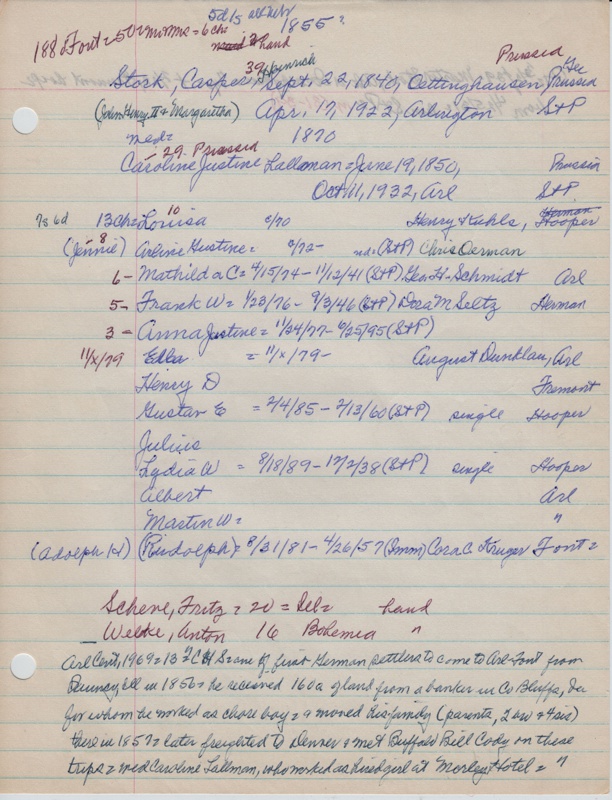 5d/5 1855?
188 Font = 50 = mrms = 6 chs hand
Prussia
39 Heinrich
Stork, Casper, Sept. 22, 1840, Oettinghausen, Prussia
(John Henry II & Margaretha) Apr. 17, 1922, Arlington St P
md = 1870
- 29 - Prussia
Caroline Justine Lallman = June 19, 1850, Prussia
Oct 11, 1932, Arl St P
7s 6d 13 ch = Louisa 10 c/70 Henry Kuhls, Hooper
(Jennie) 8 Arline Gustine = c/72 - md = (St P) Chris Oerman Herman
6 - Mathilda C = 4/15/74 - 11/12/41 (St P) Geo. H. Schmidt Arl
5 - Frank W = 1/23/76 - 9/3/46 (St P) Dora M Seltz Herman
3 = Anna Justine = 11/24/77 - 6/25/95 (St P)
11/x/79 Ella = 11/x/79 - August Dunklau, Arl
Henry D Fremont
Gustav E = 2/4/85 - 2/13/60 (St P) single Hooper
Julius
Lydia A = 8/18/89 - 12/2/38 (St P) single Hooper
Albert Arl
Martin W = "
(Adolph H) (Rudolph) = 8/31/81 - 4/26/57 (Imm) Cora C. Kruger Font =
Schene, Fritz = 20 = Deb = hand
Welke, Anton 16 Bohemia "
Arl Cent, 1969 = 132 C H S = one of first German settlers to come to Arl-Font from
Ill in 1856 = he received 160 a of land from a banker in Co Bluffs, Ia
for whom he worked as chore boy = & moved his family (parents, 2 bro & 4 sis)
there in 1857 = later freighted to Denver & met Buffalo Bill Cody on these
trips = md Caroline Lallman, who worked as hired girl at Morley Hotel = "